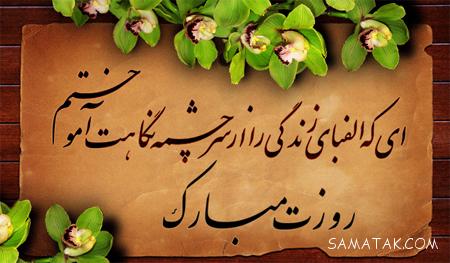 ای که الفبای زندگی را از سرچشمه نگاهت آموختم
روزت مبارک
SAMATAK.COM